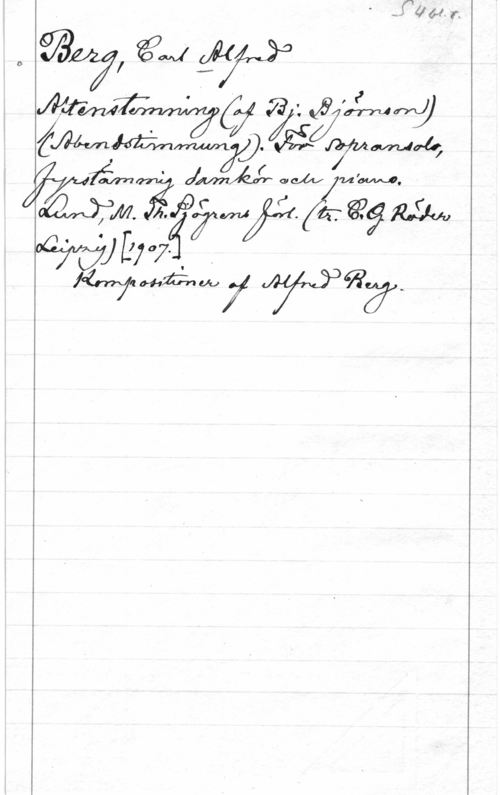 Berg, Carl Alfred
Aftenstemning (af Bj. Björnson)
(Abendstimmung). För sopransolo,
fyrstämmig damkör och piano.
Lund, M. Th. Sjögrens förl. (tr. C. G. Röder
Leipzig) [1907.]
Kompositioner af Alfred Berg.